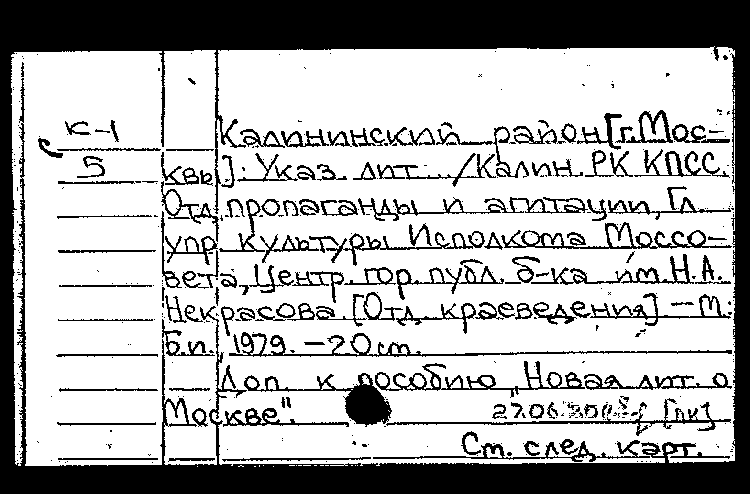 1.
К-1
5
Калининский район [г. Мос-
квы]: Указ. лит. /Калин. РК КПСС.
Отд. пропаганды и агитации, Гл.
упр. культуры Исполкома Моссо-
вета, Центр. гор. публ. б-ка им. Н.А.
Некрасова. [Отд. краеведения] – М.:
Б.и., 1979. – 20 см.
Доп. к пособию „Новая лит. о
Москве".
27.06. [ли]
См. след. карт.